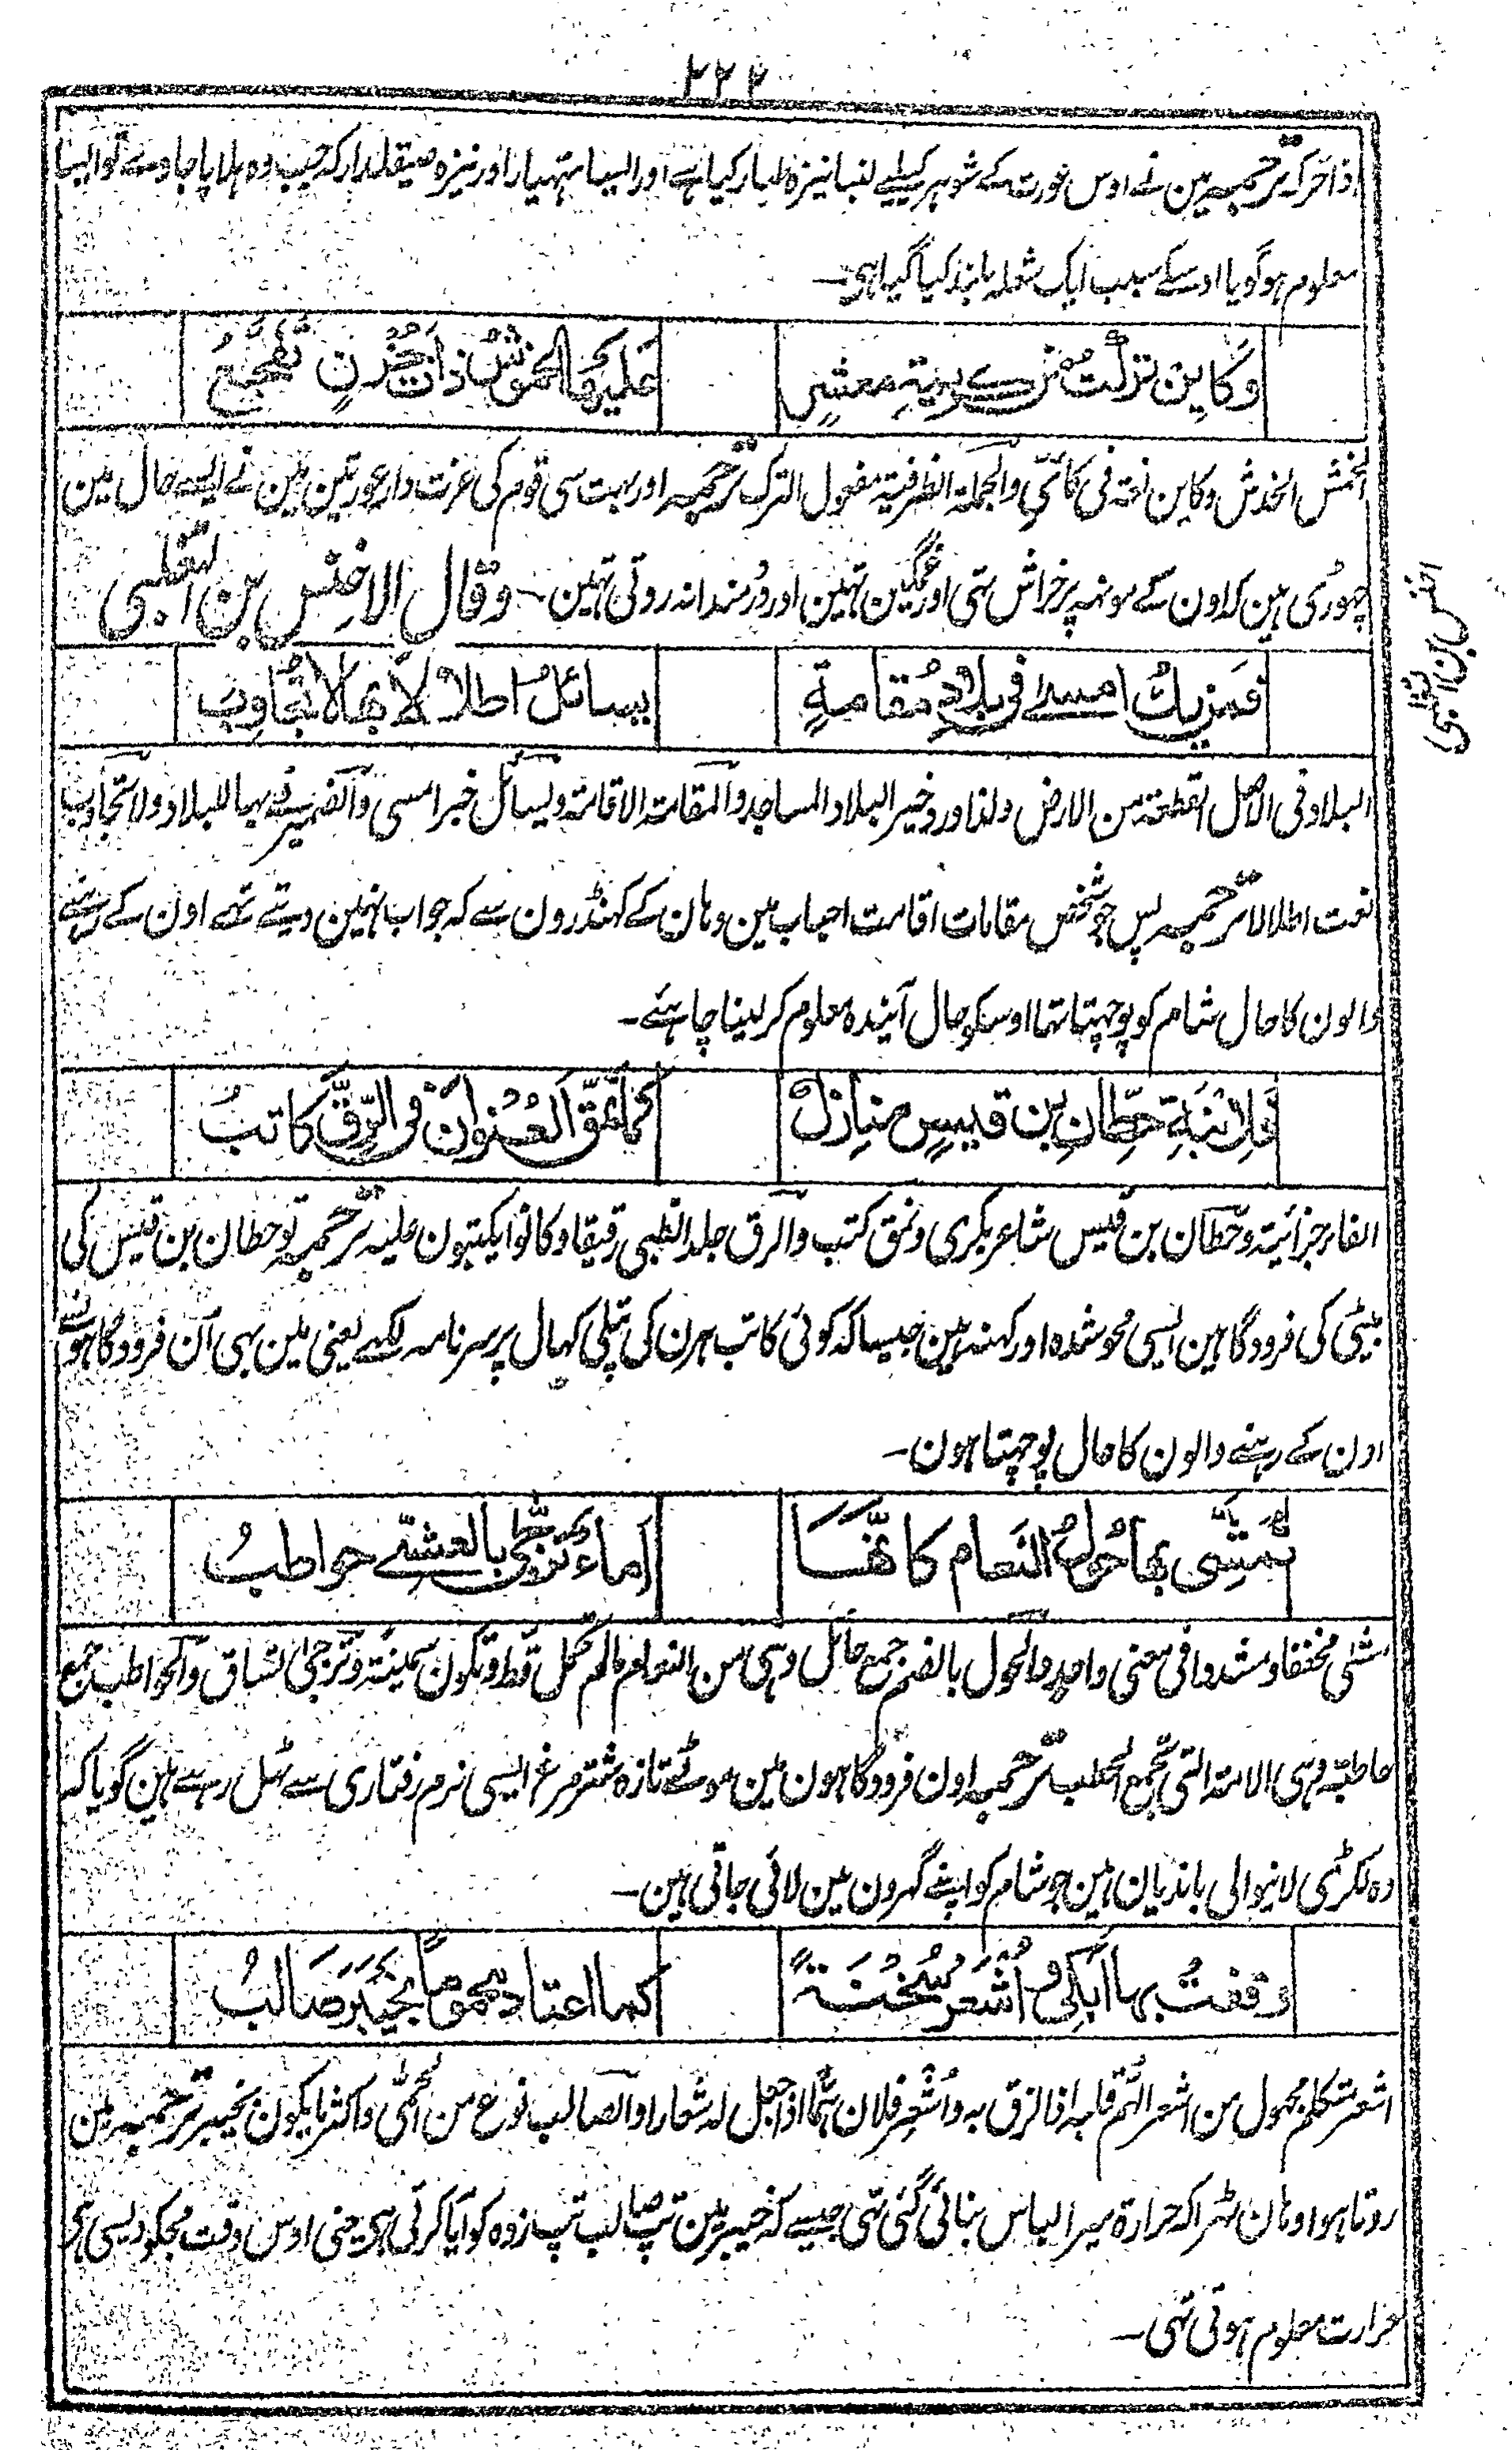 ۲۲۲
اذا حرکہ ترجمہ مین نے اوس عورت کے شوہر کیلیے لنبا نیزہ طیار کیا ہے اور ایسا ہتہیار اور نیزہ صیقلدار کہ جب وہ ہلایا جاوے تو ایسا
معلوم ہو گویا اوسکے سبب ایک شعلہ بلند کیا گیا ہی۔
وَكَايِن تركتُ من كريمةِ معشرٍ
عَلَيهَا الخموشُ ذاتَ حُزنٍ تَفَجَّعُ
الخمش الخدش وکاین لغۃ فی کأیٍّ والجملۃ الظرفیۃ مفعول الترک ترجمہ اور بہت سی قوم کی عزت دار عورتین مین نے ایسے حال مین
چہوڑی ہین کہ اون کے مونہہ پر خراش تہی اور غمگین تہین اور دردمندانہ روتی تہین۔ وقال الاخنس بن التغلبی
اخنس بن التغلبی
فمن يكُ امسى في بلادِ مُقامةٍ
يسائلُ اطلالاً بها لا تُجاوِبُ
البلاد فی الاصل القطعۃ من الارض ولذا ورد خیر البلاد المساجد والمقامۃ الاقامۃ ویسائل خبر امسی والضمیر فی بہا للبلاد ولا تجاوب
نعت اطلالا ترجمہ پس جو شخص مقامات اقامت احباب مین وہان کے کہنڈرون سے کہ جواب نہین دیتے تہے اون کے رہنے
والون کا حال شام کو پوچہتا تہا اوسکو حال آیندہ معلوم کر لینا چاہئے۔
فلِابنَةِ حِطّانِ بن قيسٍ منازلٌ
كما نَمَّقَ العُنوانَ في الرِّقِّ كاتبُ
الفاء جزائیۃ وحطان بن قیس شاعر بکری ونمق کتب والرق جلد الظبی رقیقا وکانوا یکتبون علیہ ترجمہ تو حطان بن قیس کی
بیٹی کی فرودگاہین ایسی محو شدہ اور کہنہ ہین جیسا کہ کوئی کاتب ہرن کی پتلی کہال پر سرنامہ لکہے یعنی مین بہی اُن فرودگاہون سے
اون کے رہنے والون کا حال پوچہتا ہون۔
تُمَشِّى بها حُولُ النَعام كانَّهَا
اماءٌ تُزَجّى بالعشىّ حواطبُ
مشی مخففا ومشددا فی معنی واحد والحول بالضم جمع حائل وہی من النعام مالم تحمل قط وتکون سمینۃ وتزجی تساق والحواطب جمع
حاطبۃ وہی الامۃ التی تجمع الحطب ترجمہ اون فرودگاہون مین موٹے تازہ شترمرغ ایسی نرم رفتاری سے ٹہل رہے ہین گویا کہ
وہ لکڑی لانیوالی باندیان ہین جو شام کو اپنے گہرون مین لائی جاتی ہین۔
وقفتُ بها اَبكي و اُشْعَرُ سُخْنَةً
كما اعتاد محموماً بخَيبَرَ صَالبُ
اشعر متکلم مجہول من اشعر الہم قلبہ اذا لزق بہ واُشعِر فلان ہمّا اذا جعل لہ شعارا والصالب نوع من الحمّی واکثر ما یکون بخیبر ترجمہ مین
روتا ہوا وہان ٹہرا کہ حرارۃ میرا لباس بنائی گئی تہی جیسے کہ خیبر مین تپ صالب تپ زدہ کو آیا کرتی ہی یعنی اوس وقت مجکو ویسی ہی
حرارت معلوم ہوتی تہی۔